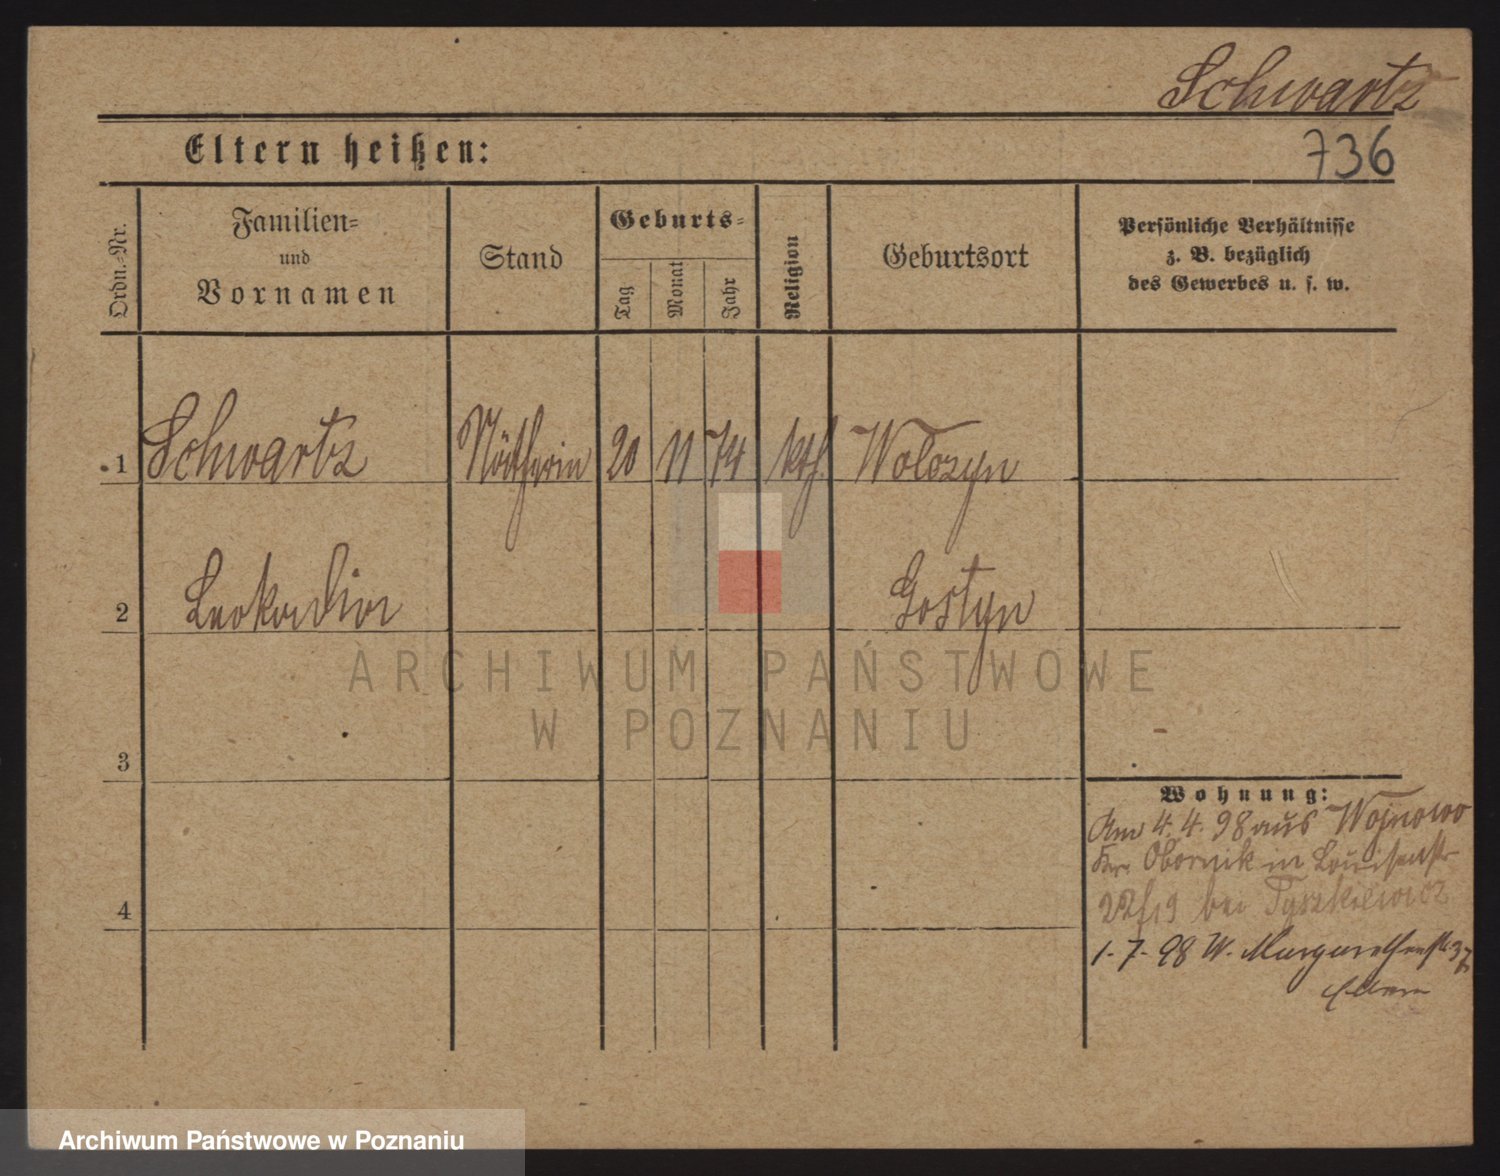 Schwartz
Eltern heißen:
736
Ordn.-Nr.
Familien-
und
Vornamen
Stand
Geburts-
Tag
Monat
Jahr
Religion
Geburtsort
Persönliche Verhältnisse
z. B. bezüglich
des Gewerbes u. s. w.
1 Schwartz Nätherin 20 11 74 kth. Wolozyn
2 Leokardia Gostyn
ARCHIWUM PAŃSTWOWE
W POZNANIU
3
Wohnung:
Am 4. 4. 98 aus Wojnowo
Kr. Obornik in Louisenstr
22/19 bei Tyszkiewicz
4
1-7-98 W. Margarethenstr 37
Eltern
Archiwum Państwowe w Poznaniu